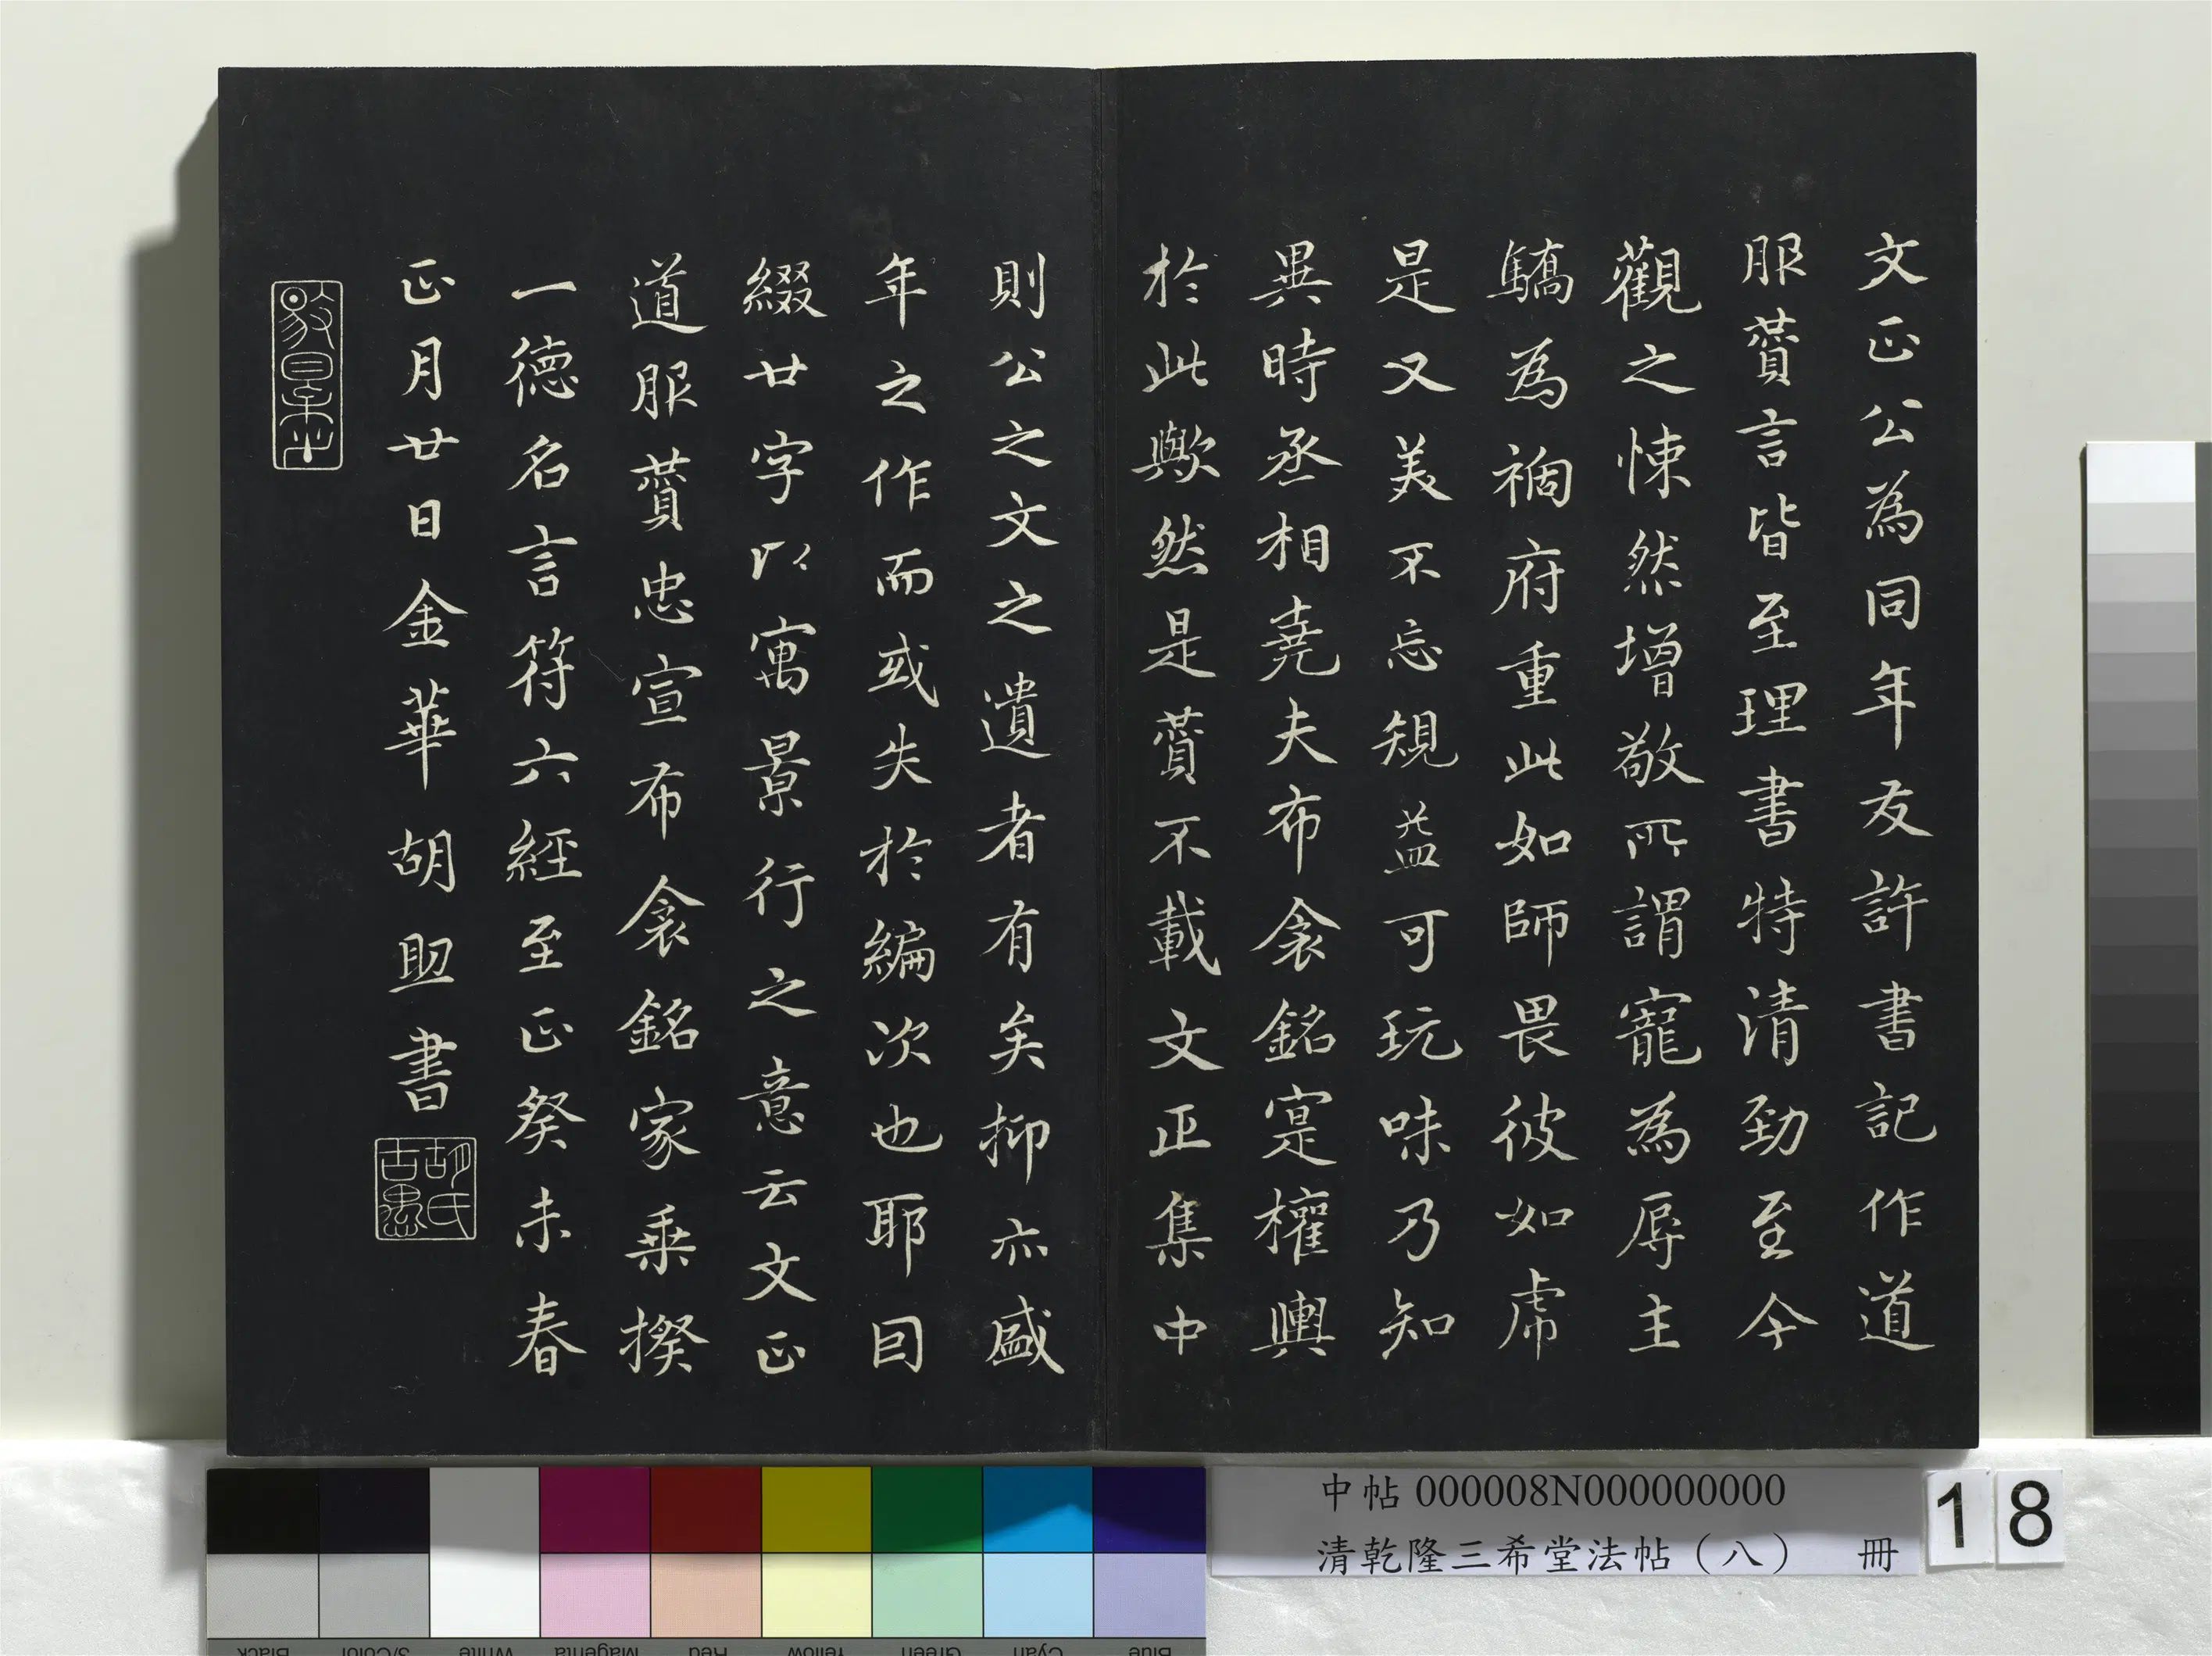 文正公為同年友許書記作道
服贊言皆至理書特清勁至今
觀之悚然增敬所謂寵為辱主
驕為禍府重此如師畏彼如虎
是又美不忘規益可玩味乃知
異時丞相堯夫布衾銘寔權輿
於此歟然是贊不載文正集中
則公之文之遺者有矣抑亦盛
年之作而或失於編次也耶因
綴廿字以寓景行之意云文正
道服贊忠宣布衾銘家乘揆
一德名言符六經至正癸未春
正月廿日金華胡助書
胡氏古愚
中帖 000008N000000000
清乾隆三希堂法帖（八） 冊
18
Black
3/Color
White
Magenta
Red
Yellow
Green
Cyan
Blue